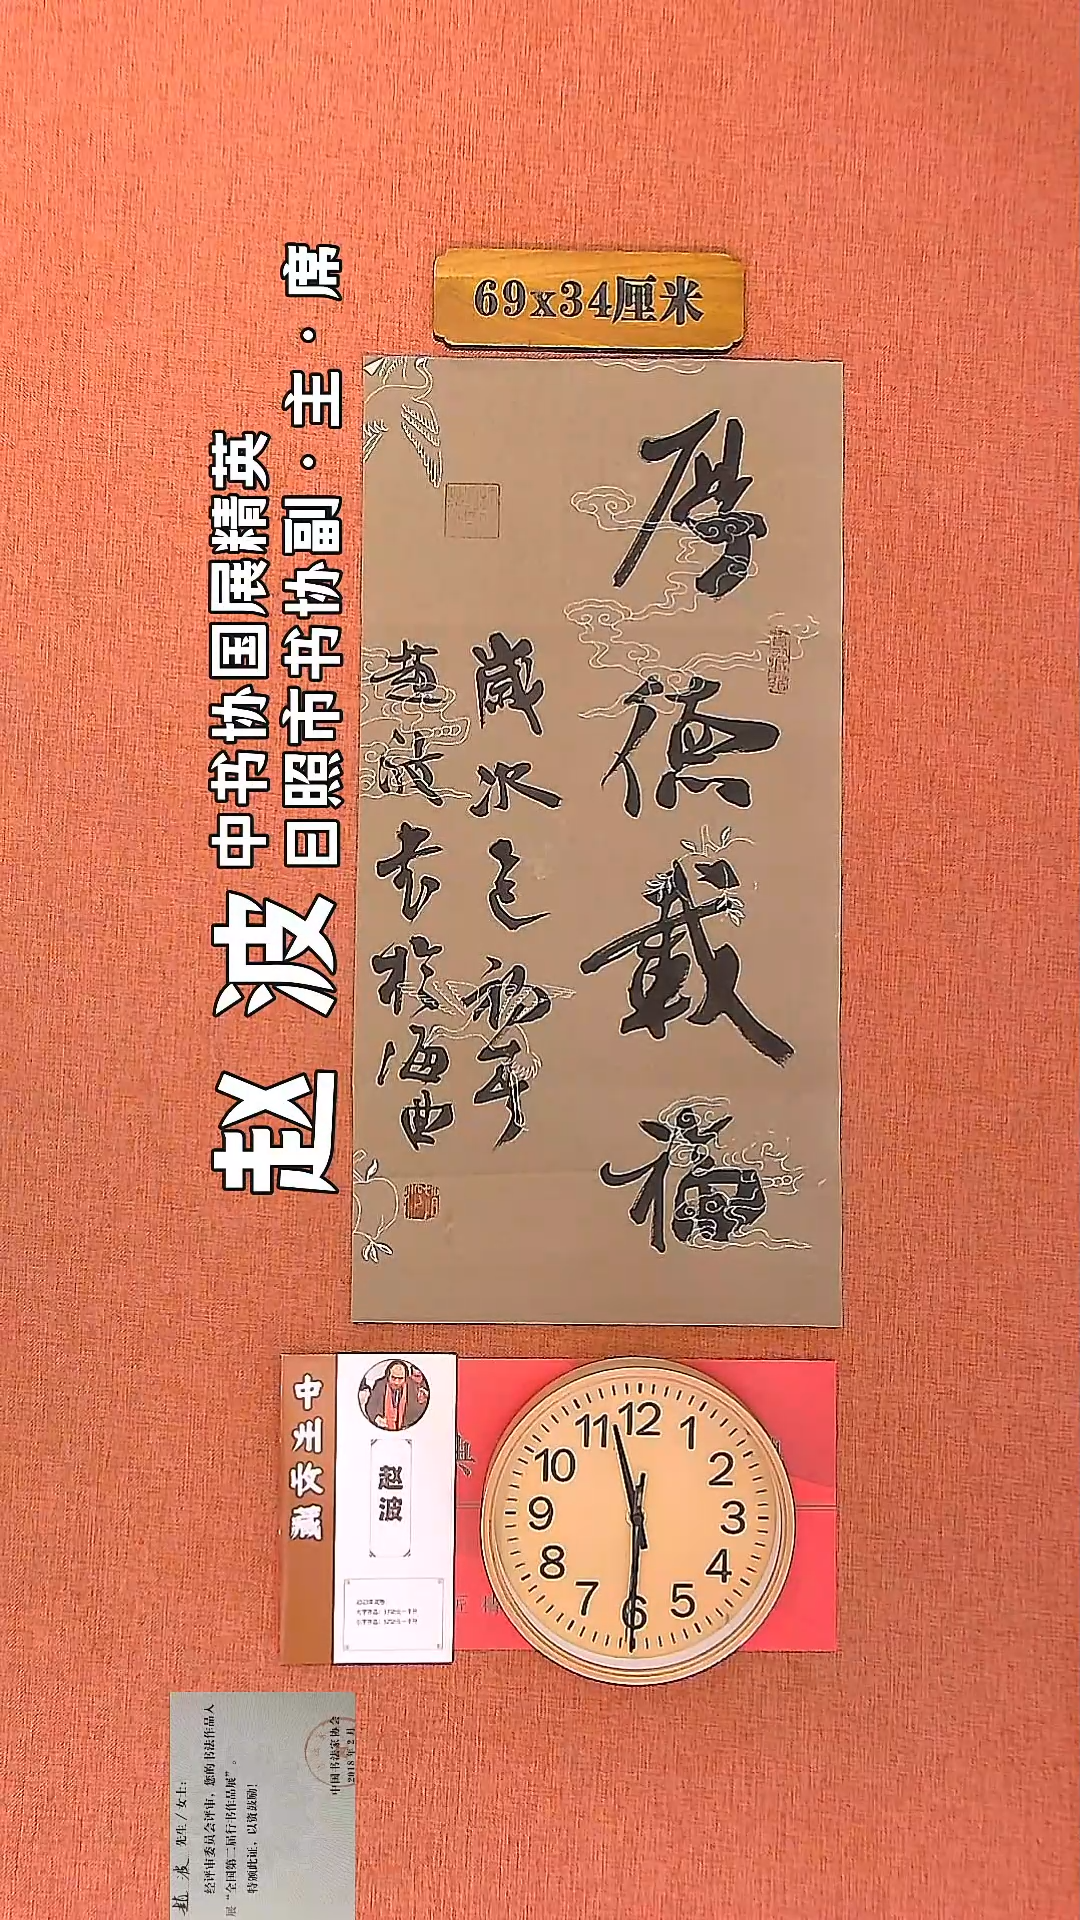 69x34厘米
中书协国展精英
日照市书协副·主·席
赵波
厚德载福
岁次乙巳初夏
赵波书于海曲
中国女主藏
赵波
12
1
2
3
4
5
6
7
8
9
10
11
赵波 先生/女士:
经评审委员会评审,您的书法作品入
展“全国第二届行书作品展”。
特颁此证,以资鼓励!
中国书法家协会
2018年2月